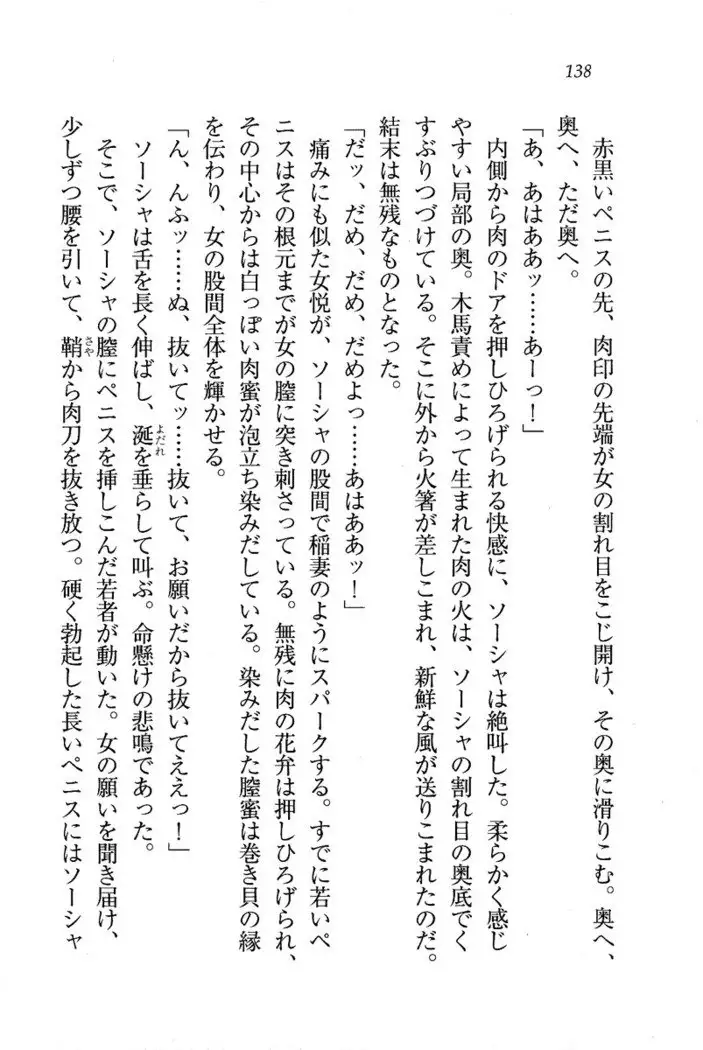 138
赤黒いペニスの先、肉印の先端が女の割れ目をこじ開け、その奥に滑りこむ。奥へ、
奥へ、ただ奥へ。
「あ、あはああッ……あーっ！」
内側から肉のドアを押しひろげられる快感に、ソーシャは絶叫した。柔らかく感じ
やすい局部の奥。木馬責めによって生まれた肉の火は、ソーシャの割れ目の奥底でく
すぶりつづけている。そこに外から火箸が差しこまれ、新鮮な風が送りこまれたのだ。
結末は無残なものとなった。
「だッ、だめ、だめ、だめよっ……あはああッ！」
痛みにも似た女悦が、ソーシャの股間で稲妻のようにスパークする。すでに若いペ
ニスはその根元までが女の膣に突き刺さっている。無残に肉の花弁は押しひろげられ、
その中心からは白っぽい肉蜜が泡立ち染みだしている。染みだした膣蜜は巻き貝の縁
を伝わり、女の股間全体を輝かせる。
「ん、んふッ……ぬ、抜いてッ……抜いて、お願いだから抜いてええっ！」
ソーシャは舌を長く伸ばし、涎を垂らして叫ぶ。命懸けの悲鳴であった。
そこで、ソーシャの膣にペニスを挿しこんだ若者が動いた。女の願いを聞き届け、
少しずつ腰を引いて、鞘から肉刀を抜き放つ。硬く勃起した長いペニスにはソーシャ